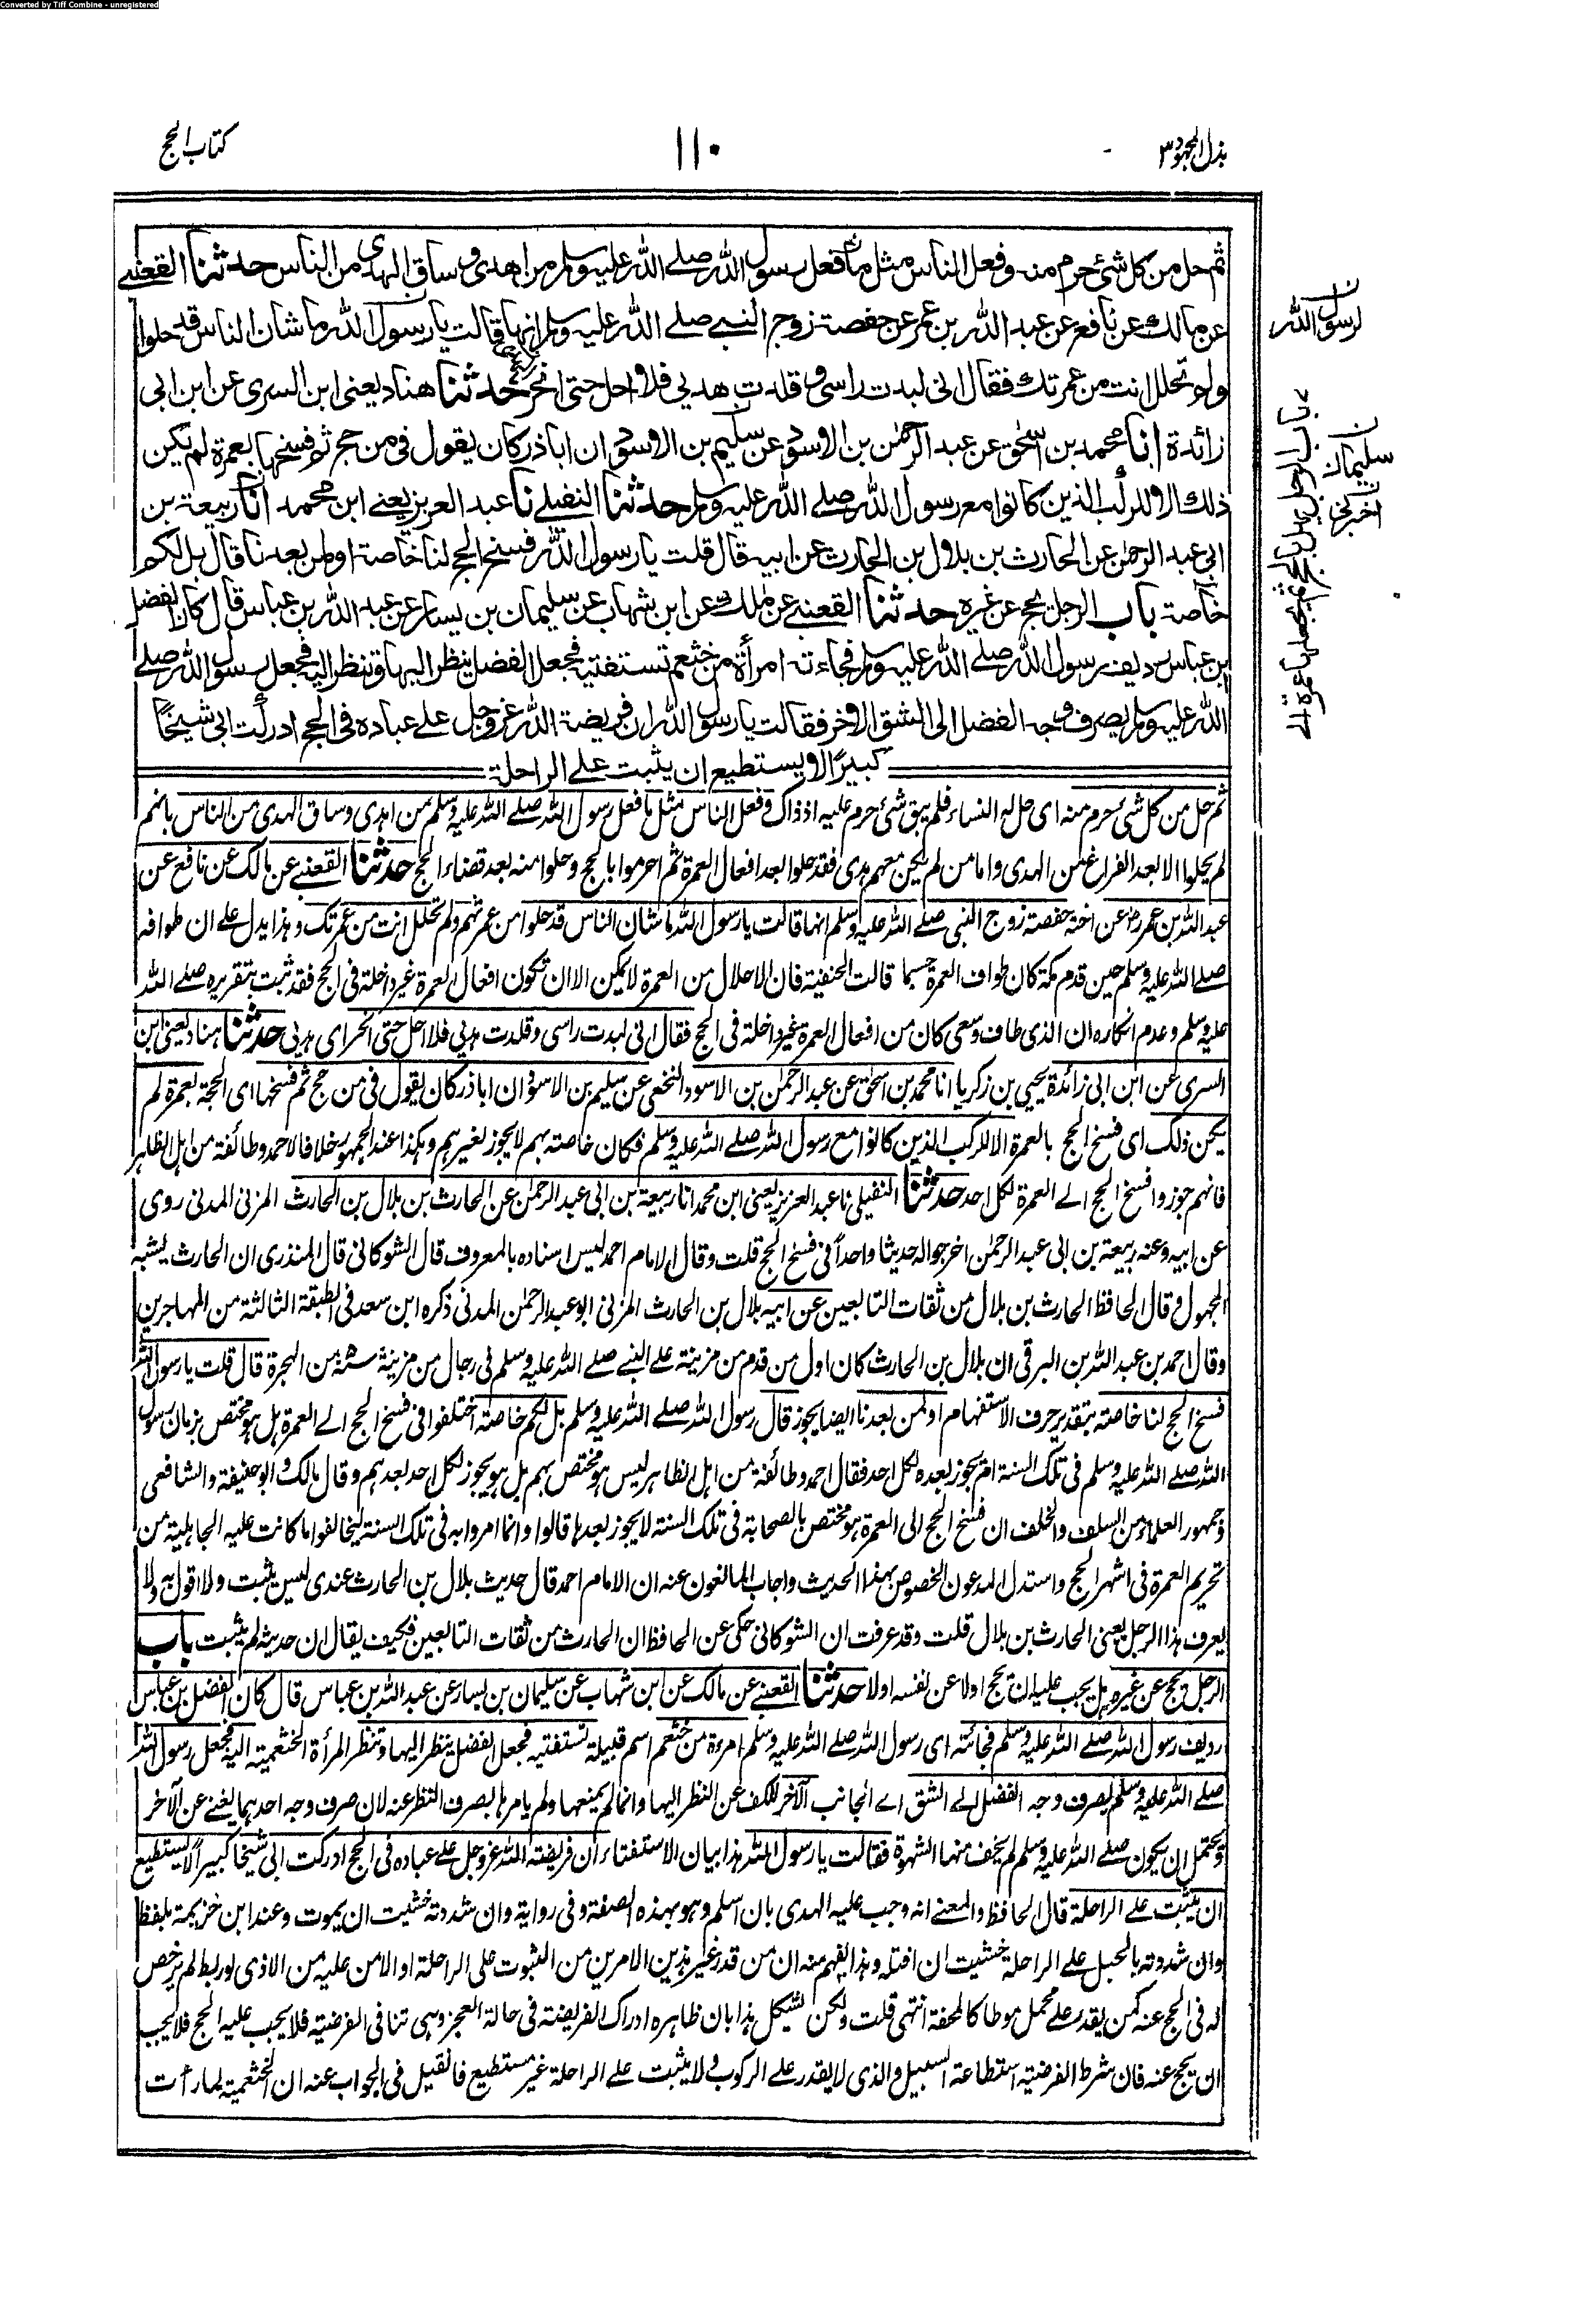 Converted by Tiff Combine - unregistered
بذل المجهود ٣
١١٠
كتاب الحج
ثم حل من كل شئ حرم منه وفعل الناس مثل ما فعل رسول الله صلے الله عليه وسلم من اهدى وساق الهدى من الناس حدثنا القعنبے
عن مالك عن نافع عن عبد الله بن عمر عن حفصة زوج النبے صلے الله عليه وسلم انها قالت يا رسول الله ما شان الناس قد حلوا
ولم تحلل انت من عمرتك فقال انى لبدت راسى وقلدت هديى فلا احل حتى انحر حدثنا هناد يعنى ابن السرى عن ابن ابى
زائدة انا محمد بن اسحق عن عبد الرحمن بن الاسود عن سليم بن الاسود ان اباذر كان يقول فى من حج ثم فسخها بعمرة لم يكن
ذلك الا للركب الذين كانوا مع رسول الله صلے الله عليه وسلم حدثنا النفيلے نا عبد العزيز يعنے ابن محمد انا ربيعة بن
ابى عبد الرحمن عن الحارث بن بلال بن الحارث عن ابيه قال قلت يا رسول الله فسخ الحج لنا خاصة او لمن بعدنا قال بل لكم
خاصة باب الرجل يحج عن غيره حدثنا القعنبے عن ملك عن ابن شهاب عن سليمان بن يسار عن عبد الله بن عباس قال كان الفضل
بن عباس رديف رسول الله صلے الله عليه وسلم فجاءته امرأة من خثعم تستفتيه فجعل الفضل ينظر اليها وتنظر اليه فجعل رسول الله صلے
الله عليه وسلم يصرف وجه الفضل الى الشق الاخر فقالت يا رسول الله ان فريضة الله عز وجل علے عباده فى الحج ادركت ابى شيخًا
كبيرًا لا يستطيع ان يثبت علے الراحلة
لرسول الله
سليمان
اخبرنى
باب الرجل يهل بالحج ثم يجعلها عمرة
ثم حل من كل شئ حرم منه اى حل له النساء فلم يبق شئ حرم عليه اذ ذاك وفعل الناس مثل ما فعل رسول الله صلے الله عليه وسلم من اهدى وساق الهدى من الناس بانهم
لم يحلوا الا بعد الفراغ من الهدى واما من لم يكن معهم هدى فقد حلوا بعد افعال العمرة ثم احرموا بالحج وحلوا منه بعد قضاء الحج حدثنا القعنبے عن مالك عن نافع عن
عبد الله بن عمر رض عن اخته حفصة زوج النبى صلے الله عليه وسلم انها قالت يا رسول الله ما شان الناس قد حلوا من عمرتهم ولم تحلل انت من عمرتك وهذا يدل علے ان طوافه
صلے الله عليه وسلم حين قدم مكة كان طواف العمرة حسبما قالت الحنفية فان الاحلال من العمرة لا يمكن الا ان تكون افعال العمرة غير داخلة فى الحج فقد ثبت بتقريره صلے الله
عليه وسلم وعدم انكاره ان الذى طاف وسعى كان من افعال العمرة غير داخلة فى الحج فقال انى لبدت راسى وقلدت هديى فلا احل حتى انحر اى هديى حدثنا هناد يعنى ابن
السرى عن ابن ابى زائدة يحيى بن زكريا انا محمد بن اسحق عن عبد الرحمن بن الاسود النخعى عن سليم بن الاسود ان اباذر كان يقول فى من حج ثم فسخها اى الحجة بعمرة لم
يكن ذلك اى فسخ الحج بالعمرة الا للركب الذين كانوا مع رسول الله صلے الله عليه وسلم فكان خاصة بهم لا يجوز لغيرهم وهكذا عند الجمهور خلافا لاحمد وطائفة من اهل الظاهر
فانهم جوزوا فسخ الحج الے العمرة لكل احد حدثنا النفيلى نا عبد العزيز يعنى ابن محمد انا ربيعة بن ابى عبد الرحمن عن الحارث بن بلال بن الحارث المزنى المدنى روى
عن ابيه وعنه ربيعة بن ابى عبد الرحمن اخرجوا له حديثا واحدا فى فسخ الحج قلت وقال الامام احمد ليس اسناده بالمعروف قال الشوكانى قال المنذرى ان الحارث يشبه
المجهول وقال الحافظ الحارث بن بلال من ثقات التابعين عن ابيه بلال بن الحارث المزنى ابو عبد الرحمن المدنى ذكره ابن سعد فى الطبقة الثالثة من المهاجرين
وقال احمد بن عبد الله بن البرقى ان بلال بن الحارث كان اول من قدم من مزينة علے النبے صلے الله عليه وسلم فى رجال من مزينة سنة ٥ من الهجرة قال قلت يا رسول الله
فسخ الحج لنا خاصة بتقدير حرف الاستفهام او لمن بعدنا ايضا يجوز قال رسول الله صلے الله عليه وسلم بل لكم خاصة اختلفوا فى فسخ الحج الے العمرة هل هو مختص بزمان رسول
الله صلے الله عليه وسلم فى تلك السنة ام يجوز بعده لكل احد فقال احمد وطائفة من اهل الظاهر ليس هو مختص بهم بل هو يجوز لكل احد بعدهم وقال مالك وابو حنيفة والشافعى
وجمهور العلماء من السلف والخلف ان فسخ الحج الى العمرة هو مختص بالصحابة فى تلك السنة لا يجوز بعدها قالوا وانما امروا به فى تلك السنة ليخالفوا ما كانت عليه الجاهلية من
تحريم العمرة فى اشهر الحج واستدل المدعون الخصوص بهذا الحديث واجاب المانعون عنه ان الامام احمد قال حديث بلال بن الحارث عندى ليس يثبت ولا اقول به ولا
يعرف هذا الرجل يعنى الحارث بن بلال قلت وقد عرفت ان الشوكانى حكى عن الحافظ ان الحارث من ثقات التابعين فكيف يقال ان حديثه لم يثبت باب
الرجل يحج عن غيره هل يجب عليه ان يحج اولا عن نفسه اولا حدثنا القعنبے عن مالك عن ابن شهاب عن سليمان بن يسار عن عبد الله بن عباس قال كان الفضل بن عباس
رديف رسول الله صلے الله عليه وسلم فجائته اى رسول الله صلے الله عليه وسلم امرءة من خثعم اسم قبيلة تستفتيه فجعل الفضل ينظر اليها وتنظر المرأة الخثعمية اليه فجعل رسول الله
صلے الله عليه وسلم يصرف وجه الفضل الے الشق اے الجانب الآخر للكف عن النظر اليها وانما لم يمنعها ولم يامرها بصرف النظر عنه لان صرف وجه احدهما يغنے عن الآخر
ويحتمل ان يكون صلے الله عليه وسلم لم يخف منها الشهوة فقالت يا رسول الله هذا بيان الاستفتاء ان فريضة الله عز وجل علے عباده فى الحج ادركت ابى شيخا كبيرا لا يستطيع
ان يثبت علے الراحلة قال الحافظ والمعنے انه وجب عليه الهدى بان اسلم وهو بهذه الصفة وفى رواية وان شددته خشيت ان يموت وعند ابن خزيمة بلفظ
وان شددته بالحبل علے الراحلة خشيت ان اقتله وهذا يفهم منه ان من قدر غير هذين الامرين من الثبوت على الراحلة او الامن عليه من الاذى لو ربط لم يرخص
له فى الحج عنه كمن يقدر علے محمل موطا كالمحفة انتهى قلت ولكن يشكل هذا بان ظاهره ادراك الفريضة فى حالة العجز وهى تنافى الفرضية فلا يجب عليه الحج فلا يجب
ان يحج عنه فان شرط الفرضية استطاعة السبيل والذى لا يقدر علے الركوب ولا يثبت علے الراحلة غير مستطيع فالقيل فى الجواب عنه ان الخثعمية لما رأت